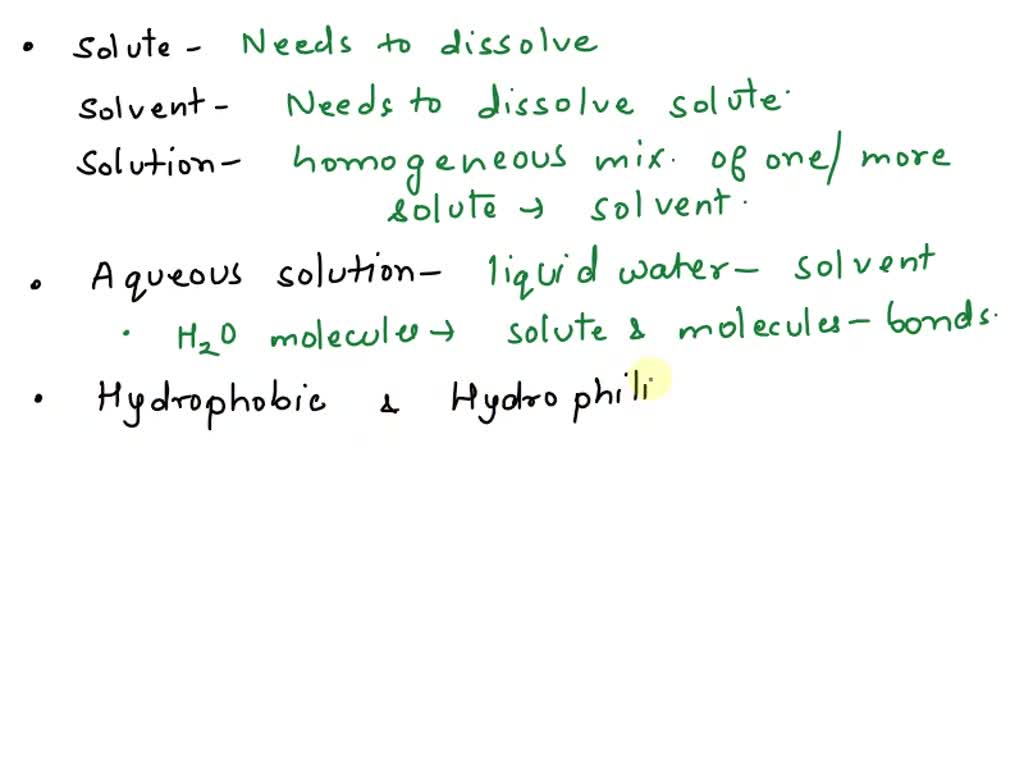 • Solute - Needs to dissolve
Solvent - Needs to dissolve solute.
Solution - homogeneous mix. of one/more
solute → solvent.
• Aqueous solution - liquid water - solvent
• H₂O molecules → solute & molecules - bonds.
• Hydrophobic & Hydrophili